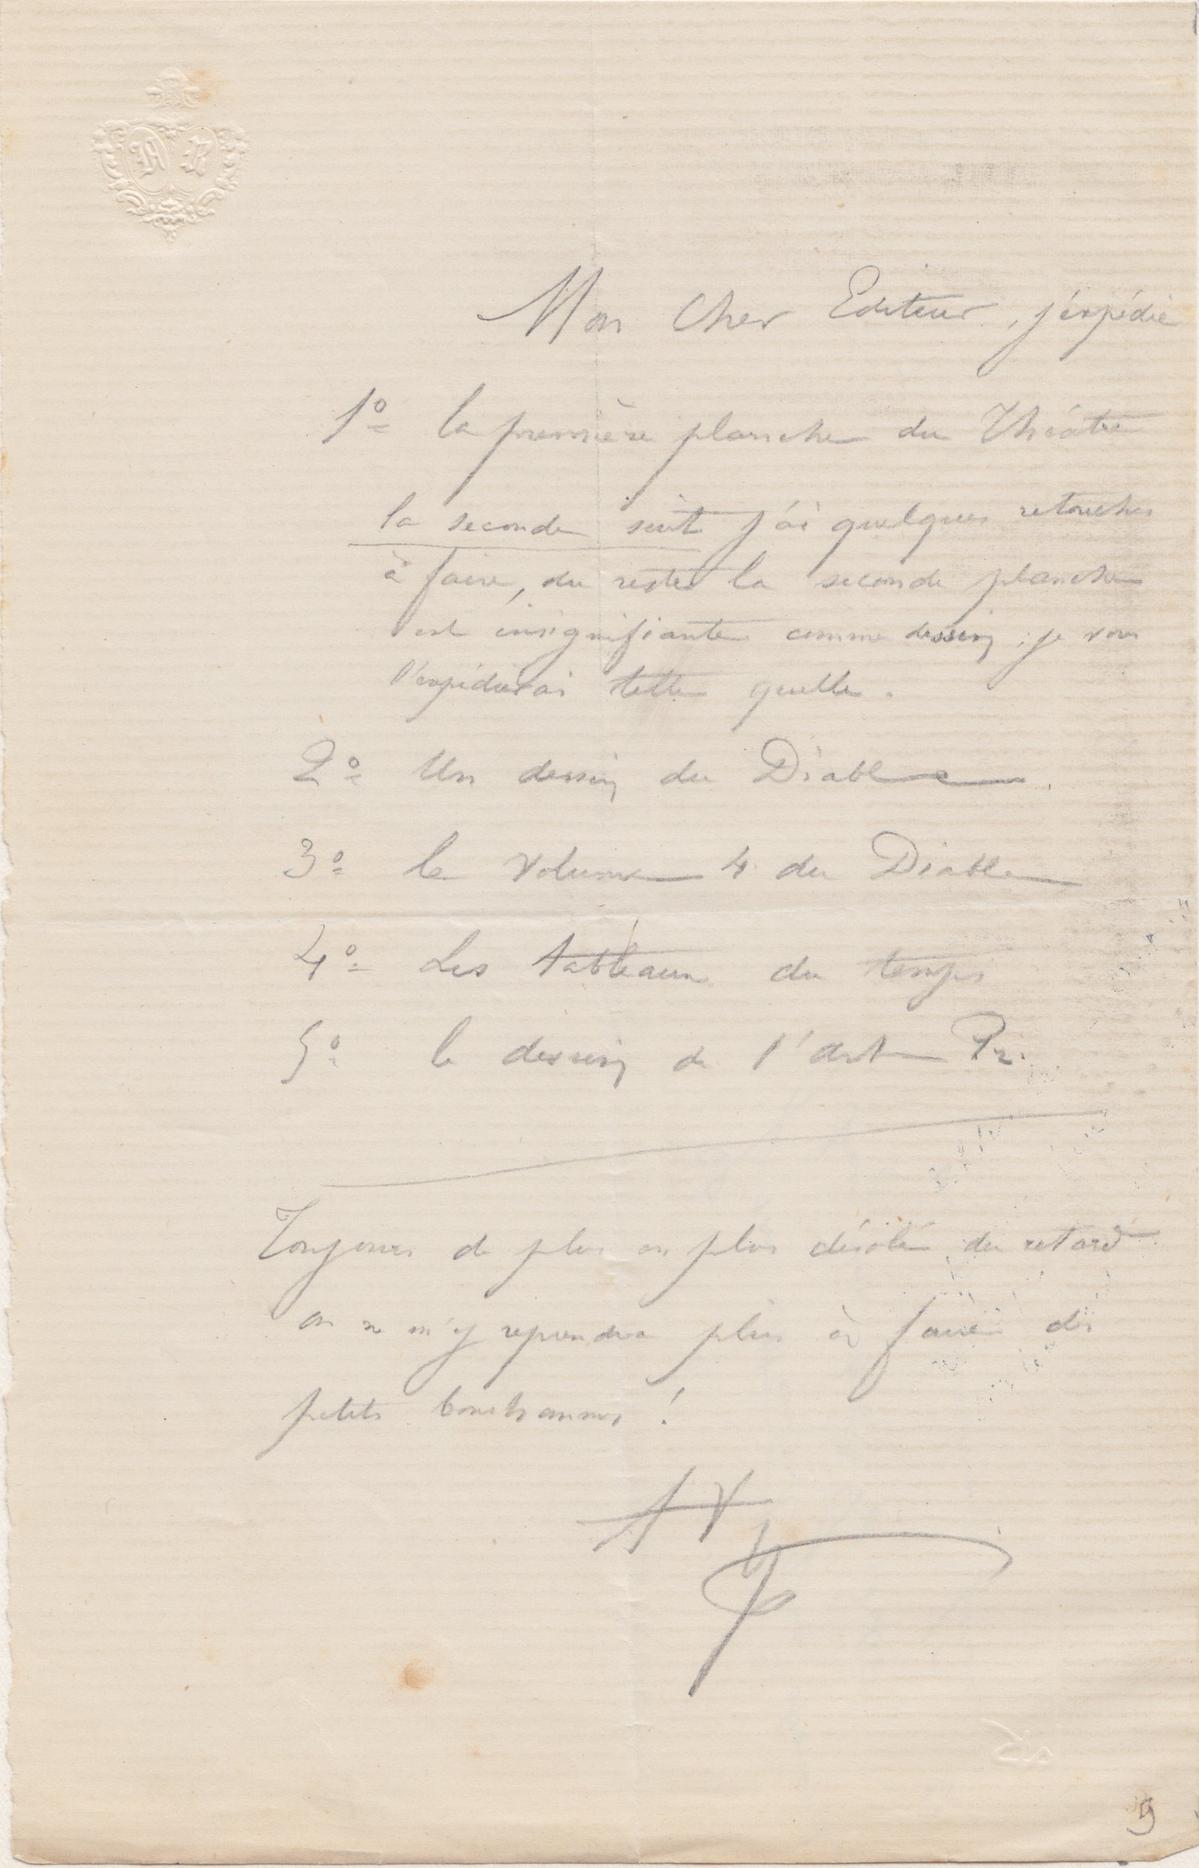 A R
Mon Cher Editeur, j'expédie
1º la première planche du Théâtre
la seconde suit j'ai quelques retouches
à faire, du reste la seconde planche
est insignifiante comme dessin ; je vous
l'expédierai telle quelle.
2º Un dessin du Diable
3º le volume 4 du Diable
4º Les tableaux du temps
5º le dessin de l'art Pr.
Toujours de plus en plus désolé du retard
on ne m'y reprendra plus à faire des
petits bonshommes !
9